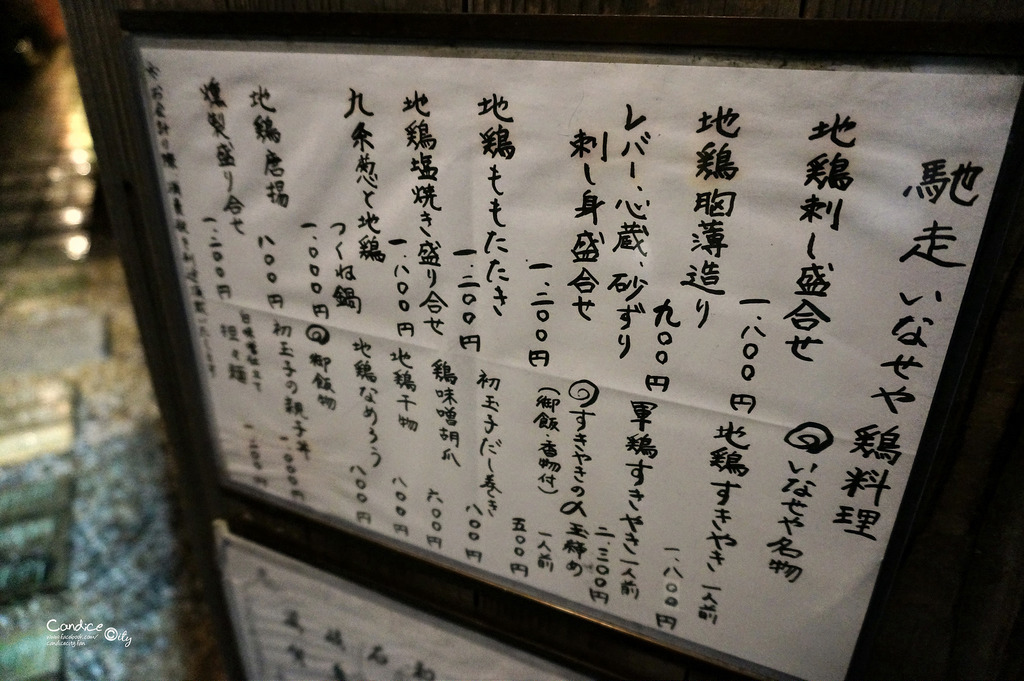 馳走いなせや 鶏料理
地鶏刺し盛合せ
一、八〇〇円
地鶏胸薄造り
九〇〇円
レバー、心蔵、砂ずり
刺し身盛合せ
一、二〇〇円
地鶏ももたたき
一、二〇〇円
地鶏塩焼き盛り合せ
一、八〇〇円
九条葱と地鶏
つくね鍋
一、〇〇〇円
地鶏唐揚
八〇〇円
燻製盛り合せ
一、二〇〇円
いなせや名物
地鶏すきやき 一人前
一、八〇〇円
軍鶏すきやき 一人前
二、三〇〇円
すきやきの〆 玉締め
(御飯・香物付) 一人前
五〇〇円
初玉子だし巻き
八〇〇円
鶏味噌胡瓜
六〇〇円
地鶏干物
八〇〇円
地鶏なめろう
八〇〇円
御飯物
初玉子の親子丼
一、〇〇〇円
担々麺
Candice City
www.facebook.com/
candicecity.fan